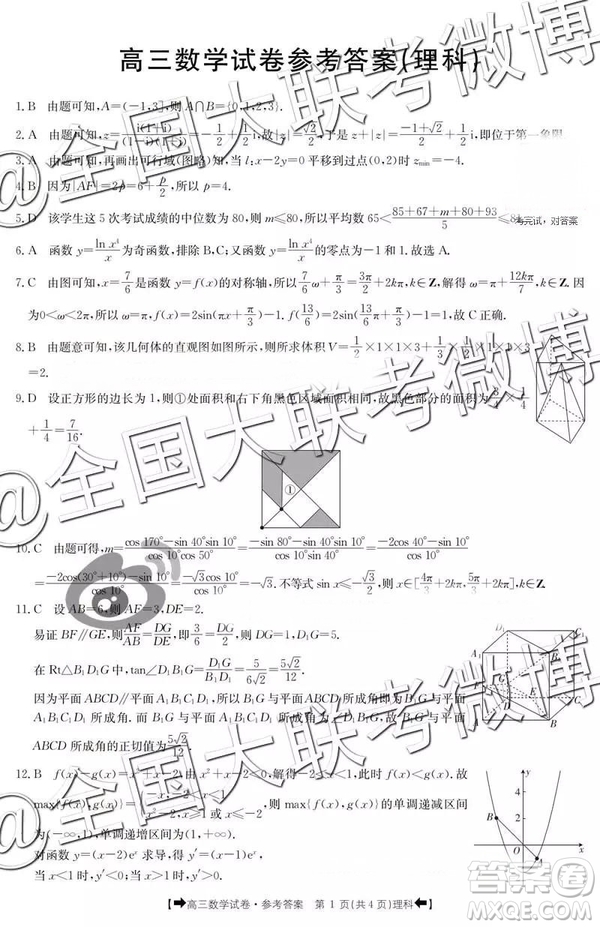 高三数学试卷参考答案(理科)
1.B 由题可知,A=(-1,3],则A∩B={0,1,2,3}.
2.A 由题可知,z=i(1+i)/(1-i)(1+i)=-1/2+1/2i,故|z|=√2/2,于是z+|z|=(-1+√2)/2+1/2i,即位于第一象限
3.A 由题可知,再画出可行域(图略)知,当l:x-2y=0平移到过点(0,2)时z_min=-4.
4.B 因为|AF|=2p=6+p/2,所以p=4.
5.D 该学生这5次考试成绩的中位数为80,则m≤80,所以平均数65<(85+67+m+80+93)/5≤ 考完试,对答案
6.A 函数y=ln x⁴/x为奇函数,排除B,C;又函数y=ln x⁴/x的零点为-1和1,故选A.
7.C 由图可知,x=7/6是函数y=f(x)的对称轴,所以7/6ω+π/3=3π/2+2kπ,k∈Z,解得ω=π+12kπ/7,k∈Z.因
为0<ω<2π,所以ω=π,f(x)=2sin(πx+π/3)-1.f(13/6)=2sin(13/6π+π/3)-1=1,故C正确.
8.B 由题意可知,该几何体的直观图如图所示,则所求体积V=1/2×1×1×3+1/3×1/2×1×1×3
=2.
9.D 设正方形的边长为1,则①处面积和右下角黑色区域面积相同,故黑色部分的面积为3/4×1/4
+1/4=7/16.
①
10.C 由题可得,m=(cos 170°-sin 40°sin 10°)/(cos 10°cos 50°)=(-sin 80°-sin 40°sin 10°)/(sin 40°cos 10°)=(-2cos 40°-sin 10°)/cos 10°
=(-2cos(30°+10°)-sin 10°)/cos 10°=-√3cos 10°/cos 10°=-√3.不等式sin x≤-√3/2,所以x∈[4π/3+2kπ,5π/3+2kπ],k∈Z.
11.C 设AB=6,则AF=3,DE=2.
易证BF∥GE,则AF/AB=DG/DE,即3/6=DG/2,所以DG=1,D₁G=5.
在Rt△B₁D₁G中,tan∠D₁B₁G=D₁G/B₁D₁=5/6√2=5√2/12.
因为平面ABCD∥平面A₁B₁C₁D₁,所以B₁G与平面ABCD所成角即为B₁G与平面
A₁B₁C₁D₁所成角.因为B₁G与平面A₁B₁C₁D₁所成角为∠D₁B₁G,所以B₁G与平面
ABCD所成角的正切值为5√2/12.
12.B f(x)-g(x)=x²+x-2,由x²+x-2<0,解得-2<x<1,此时,f(x)<g(x).故
max{f(x),g(x)}={x²-2,x≥1或x≤-2,则max{f(x),g(x)}的单调递减区间
为(-∞,1),单调递增区间为(1,+∞).
对函数y=(x-2)eˣ求导,得y′=(x-1)eˣ.
当x<1时,y′<0;当x>1时,y′>0.
高三数学试卷·参考答案 第1页(共4页)理科
@全国大联考微博
@全国大联考微博
@全国大联考微博
答案圈